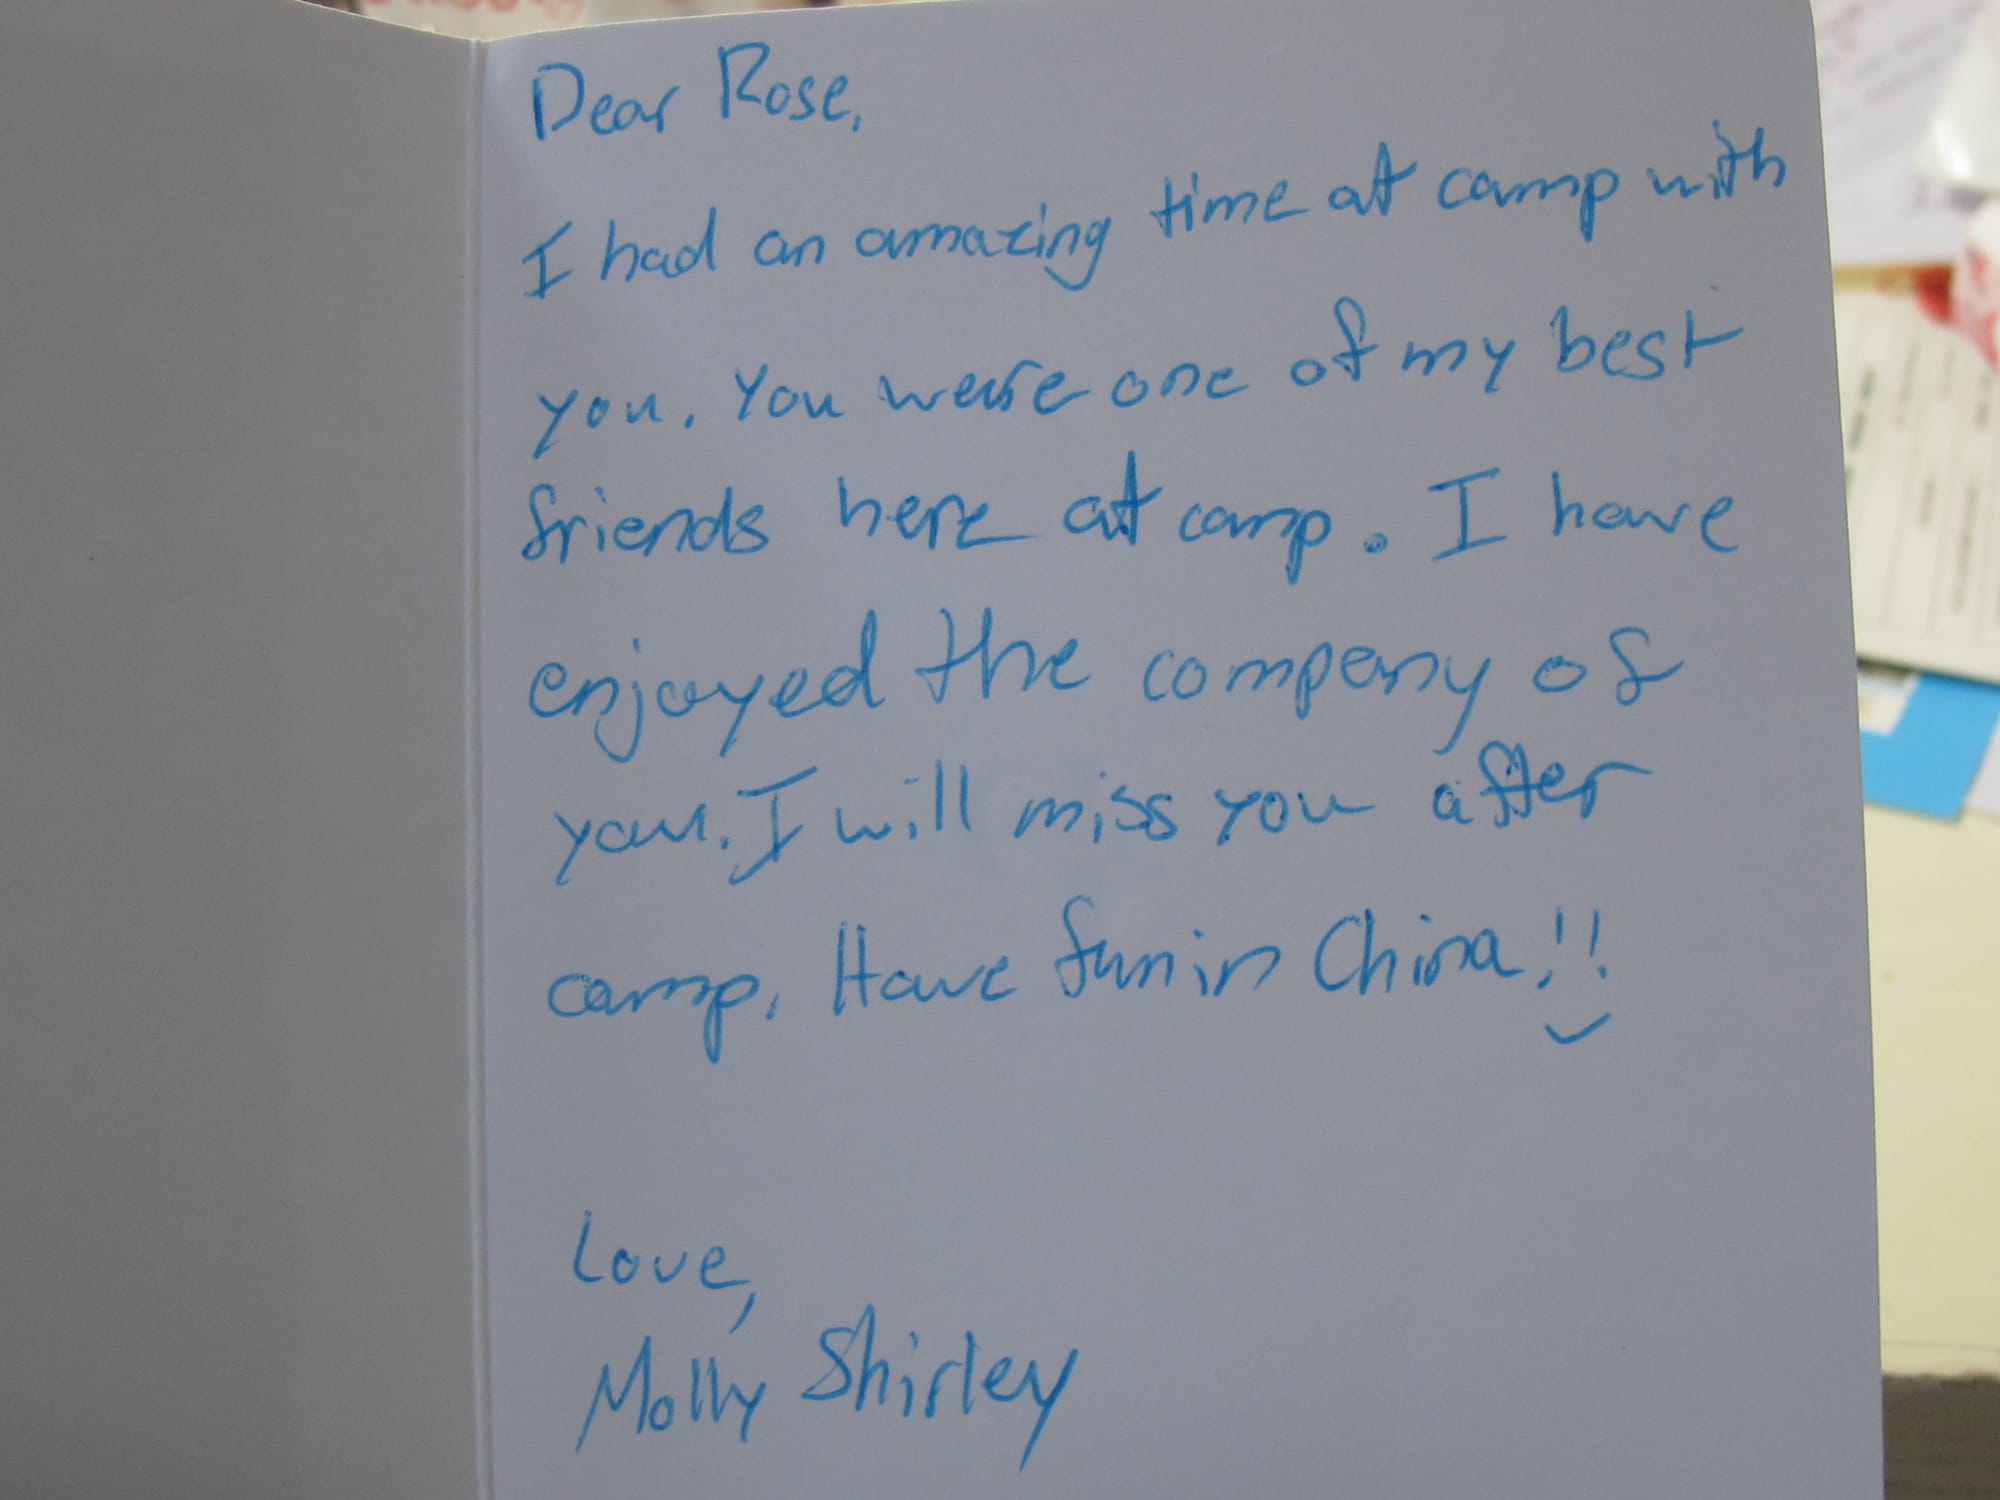 Dear Rose,
I had an amazing time at camp with
you. You were one of my best
friends here at camp. I have
enjoyed the company of
you. I will miss you after
camp. Have fun in China!!
Love,
Molly Shirley